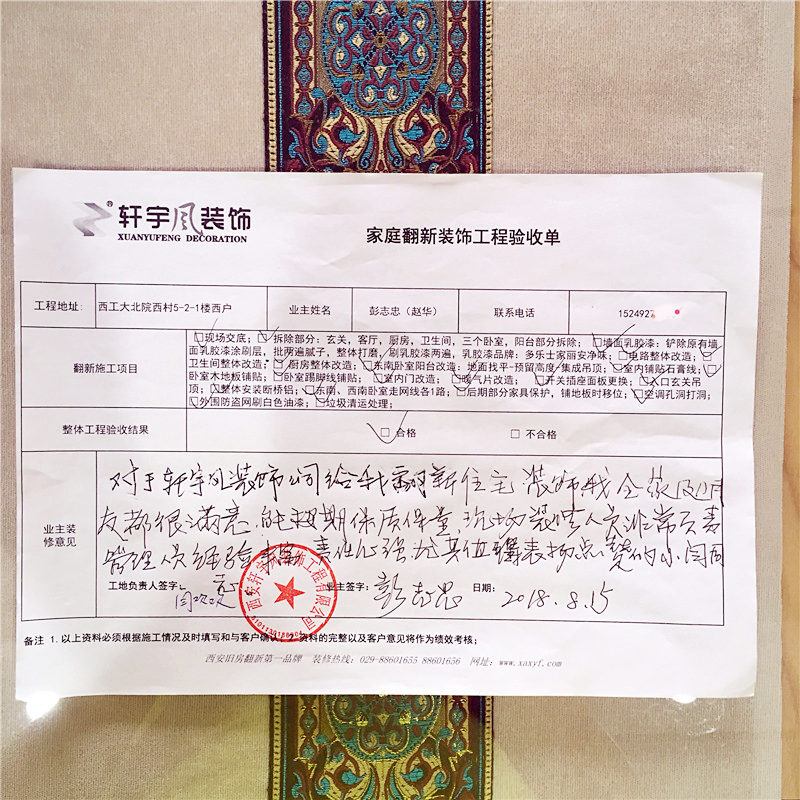 轩宇风装饰
XUANYUFENG DECORATION
家庭翻新装饰工程验收单
工程地址: 西工大北院西村5-2-1楼西户 业主姓名 彭志忠（赵华） 联系电话 1524927
翻新施工项目
□现场交底；□ 拆除部分：玄关，客厅，厨房，卫生间，三个卧室，阳台部分拆除；□墙面乳胶漆：铲除原有墙
面乳胶漆涂刷层，批两遍腻子，整体打磨，刷乳胶漆两遍，乳胶漆品牌：多乐士家丽安净味；□电路整体改造；□
卫生间整体改造；□ 厨房整体改造；□东南卧室阳台改造：地面找平-预留高度/集成吊顶；□室内铺贴石膏线；□
卧室木地板铺贴；□卧室踢脚线铺贴；□室内门改造；□暖气片改造；□开关插座面板更换；□入口玄关吊
顶；□整体安装断桥铝；□东南、西南卧室走网线各1路；□后期部分家具保护，铺地板时移位；□空调孔洞打洞；
□外围防盗网刷白色油漆；□垃圾清运处理；
整体工程验收结果 □合格 □不合格
业主装
修意见
对于轩宇风装饰公司给我翻新住宅装饰我全家及朋
友都很满意，能按期保质保量，现场装修人员非常负责
管理人员经验丰富 责任心强尤其值得表扬点赞的小闫同
工地负责人签字： 业主签字： 彭志忠 日期： 2018.8.15
备注 1.以上资料必须根据施工情况及时填写和与客户确认 资料的完整以及客户意见将作为绩效考核；
西安旧房翻新第一品牌 装修热线：029-88601655 88601656 网址：www.xaxyf.com